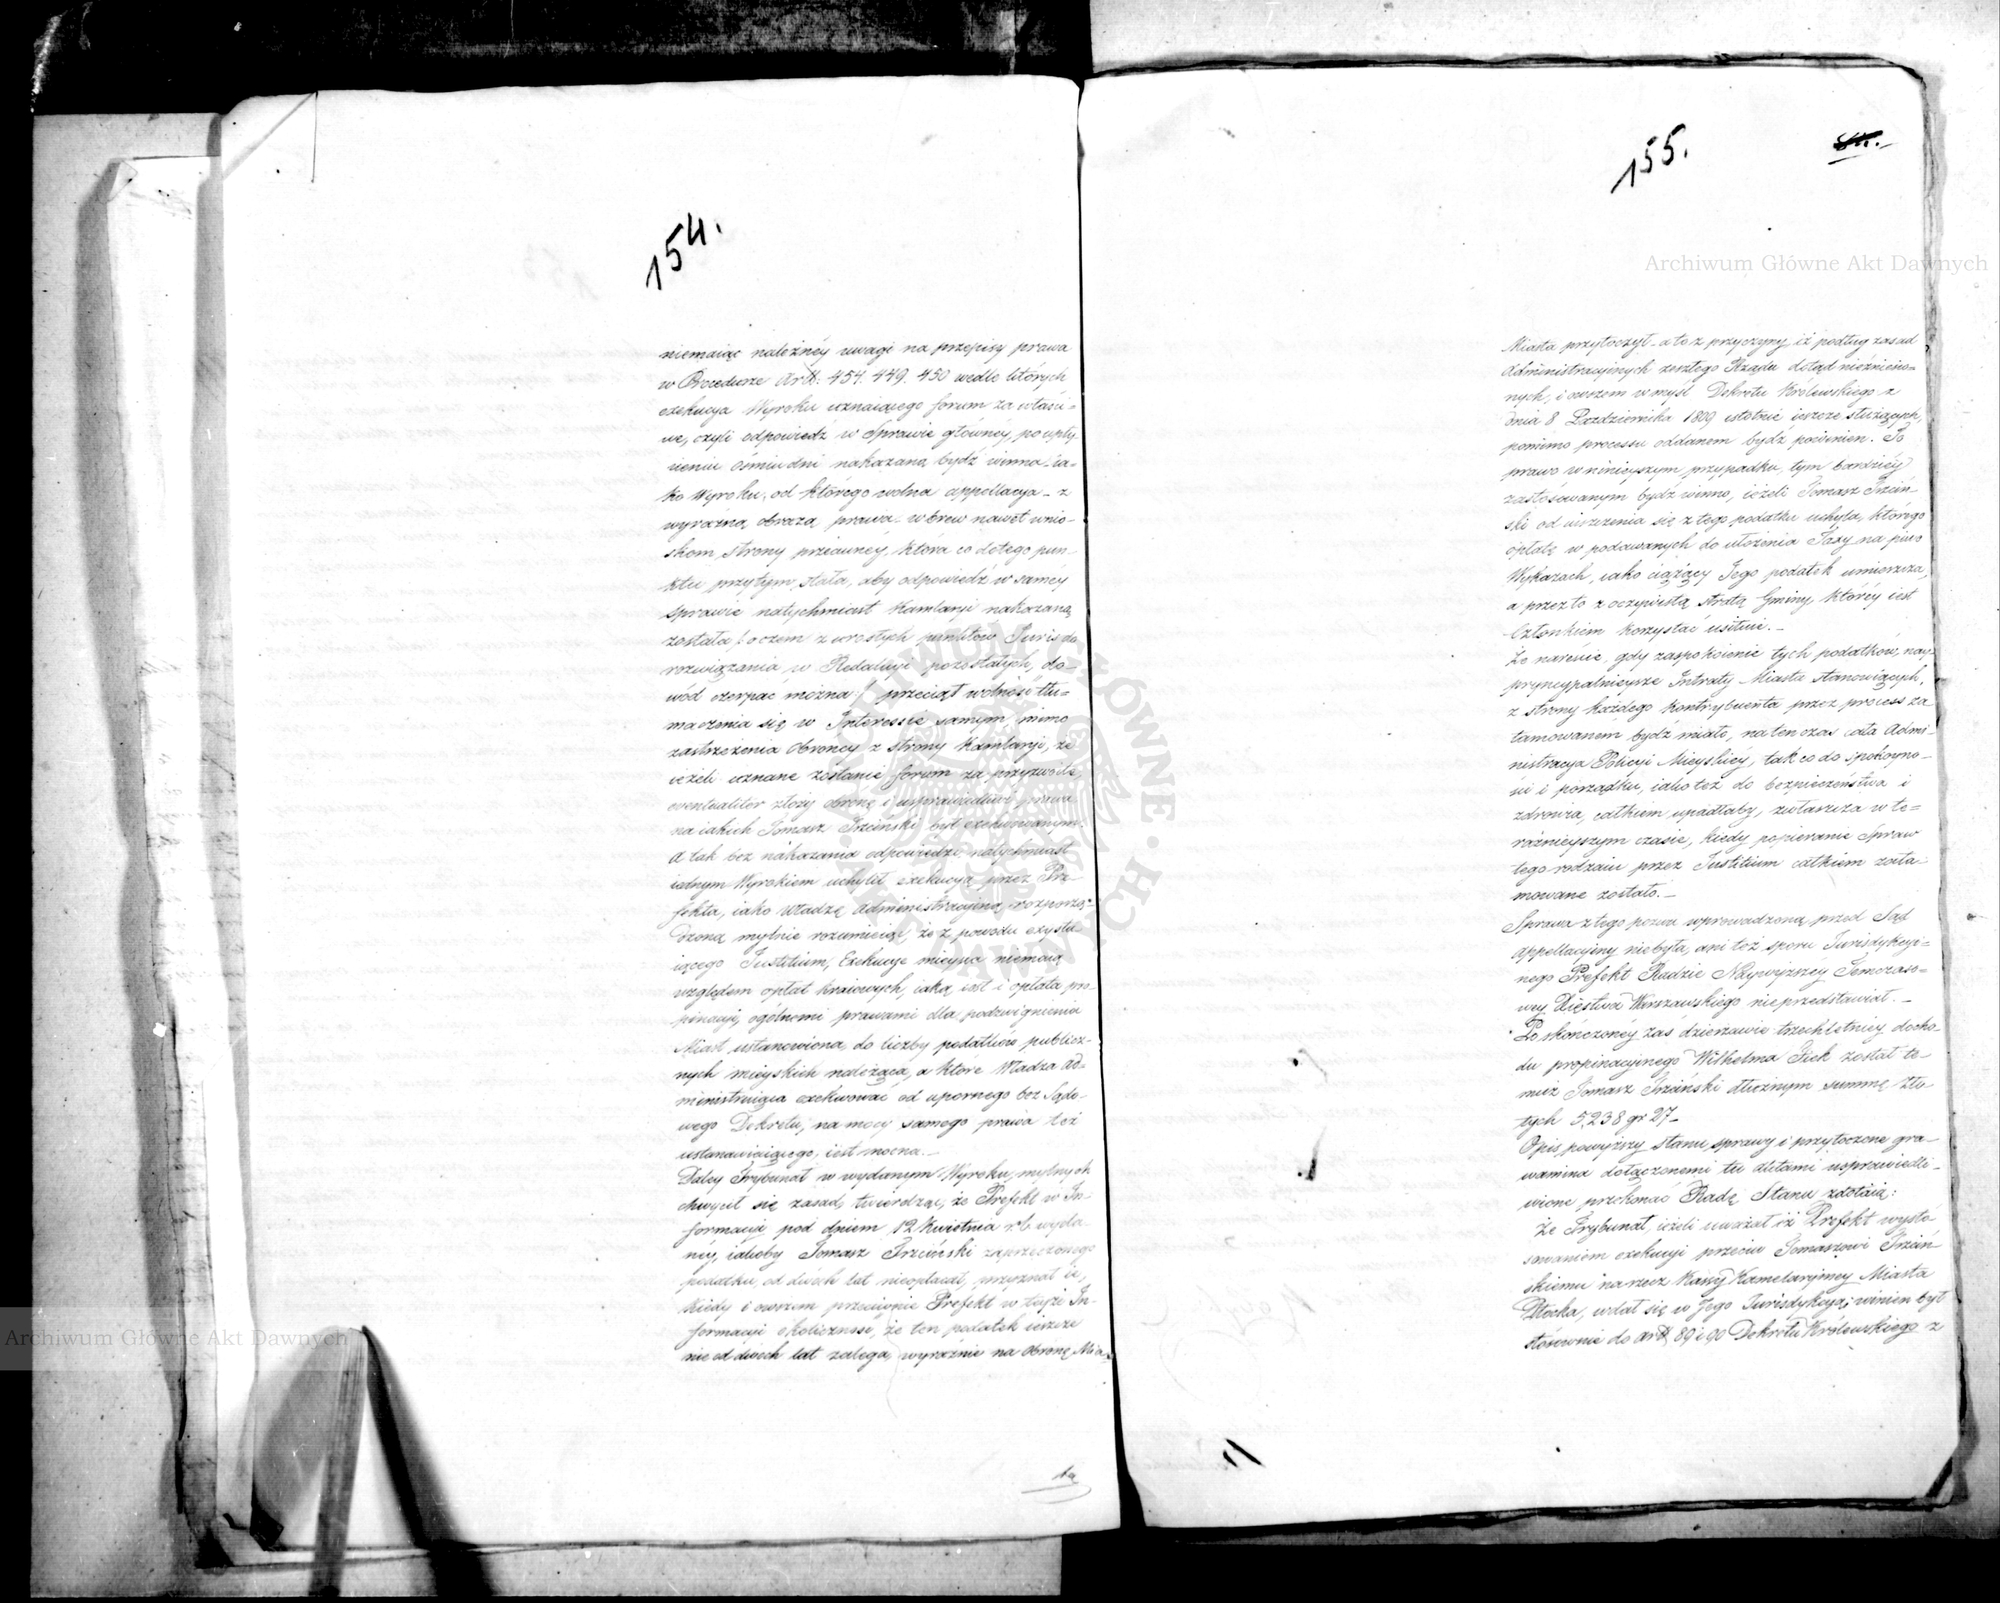 154.
niemaiąc należnéy uwagi na przepisy prawa
w Procedurze Artt: 454. 449. 450 wedle których
exekucya Wyroku uznaiącego forum za właści-
we, czyli odpowiedź w Sprawie głowney, po upły-
nieniu ośmiu dni nakazaną bydź winna ia-
ko Wyroku, od którego wolna appellacya – z
wyraźną obrazą prawa – wbrew nawet wnio-
skom strony przeciwnéy, która co do tego pun-
ktu przytym stała, aby odpowiedź w saméy
sprawie natychmiast Kamlaryi nakazaną
została /: o czem z urosłych punktów Juris do
rozwiązania w Redakcyi pozostałych, do-
wód czerpać można :/ przeciął wolność tłu-
maczenia się w Interessie samym, mimo
zastrzeżenia Obroncy z strony Kamlaryi, że
ieżeli uznane zostanie forum za przyzwoite,
eventualiter złoży obronę i usprawiedliwi prawa
na iakich Tomasz Trzciński był exekwowanym.
A tak bez nakazania odpowiedzi natychmiast
iednym Wyrokiem uchylił exekucyą przez Pre-
fekta, iako władzę administracyiną rozporzą-
dzoną mylnie rozumieiąc, że z powodu exystu-
iącego Justitium, Exekucye mieysca niemaią
względem opłat kraiowych, iaką iest i opłata pro-
pinacyi, ogólnemi prawami dla podzwignienia
Miast ustanowiona, do liczby podatków publicz-
nych mieyskich należąca, a które Władza Ad-
ministruiąca exekwować od upornego bez Sądo-
wego Dekretu, na mocy samego prawa też
ustanawiaiącego, iest mocna. –
Daley Trybunał w wydanym Wyroku mylnych
chwycił się zasad, twierdząc, że Prefekt w In-
formacyi pod dniem 12 Kwietnia r. b. wyda-
ney, iakoby Tomasz Trzciński zaprzeczonego
podatku od dwóch lat nieopłacał, przyznał to,
Kiedy i owszem przeciwnie Prefekt w teyże In-
formacyi okoliczność, że ten podatek ieszcze
nie od dwóch lat zalega, wyraźnie na obronę Mia-
155.
Miasta przytoczył – a to z przyczyny iż podług zasad
Administracyinych zeszłego Rządu dotąd nieznieno-
nych, i owszem w myśl Dekretu Królewskiego z
dnia 8 Pazdziernika 1809 istotnie ieszcze służących,
pomimo processu oddanem bydź powinien. To
prawo w ninieyszym przypadku, tym bardziéy
zastósowanym bydź winno, ieżeli Tomasz Trzciń-
ski od uiszczenia się z tego podatku uchyla, którego
opłatę w podawanych do ułożenia Taxy na piwo
Wykazach, iako ciążący Jego podatek umieszcza,
a przez to z oczywistą stratą Gminy, któréy iest
Członkiem korzystać usiłuie. –
Że nareście, gdy zaspokoienie tych podatków, nay-
pryncypalnieysze Intraty Miasta stanowiących,
z strony każdego kontrybuenta przez process za-
tamowanem bydź miało, na ten czas cała Admi-
nistracya Policyi Mieyskiéy, tak co do spokoyno-
ści i porządku, iako też do bezpieczeństwa i
zdrowia, całkiem upadłaby, zwłaszcza w te-
raźnieyszym czasie, kiedy popieranie Spraw
tego rodzaiu przez Justitium całkiem zata-
mowane zostało. –
Sprawa z tego pozwu wprowadzoną przed Sąd
Appellacyiny niebyła, ani też sporu Jurisdykcyi-
nego Prefekt Radzie Naywyższéy Temczaso-
wey Xięstwa Warszawskiego nieprzedstawiał. –
Po skończoney zaś dzierzawie trzechletniey docho-
du propinacyinego Wilhelma Fick został te-
muż Tomasz Trzciński dłużnym summę Zło-
tych 5,238 gr 27 –
Opis powyższy stanu sprawy i przytoczone gra-
wamina dołączonemi tu aktami usprawiedli-
wione przekonać Radę Stanu zdołaią:
Że Trybunał, ieżeli uważał iż Prefekt wystó-
sowaniem exekucyi przeciw Tomaszowi Trzciń-
skiemu na rzecz Kassy Kamelaryiney Miasta
Płocka, wdał się w Jego Jurisdykcyą; winien był
stósownie do artt. 89 i 90 Dekretu Królewskiego z
Archiwum Główne Akt Dawnych
Archiwum Główne Akt Dawnych
ARCHIWUM GŁÓWNE AKT DAWNYCH